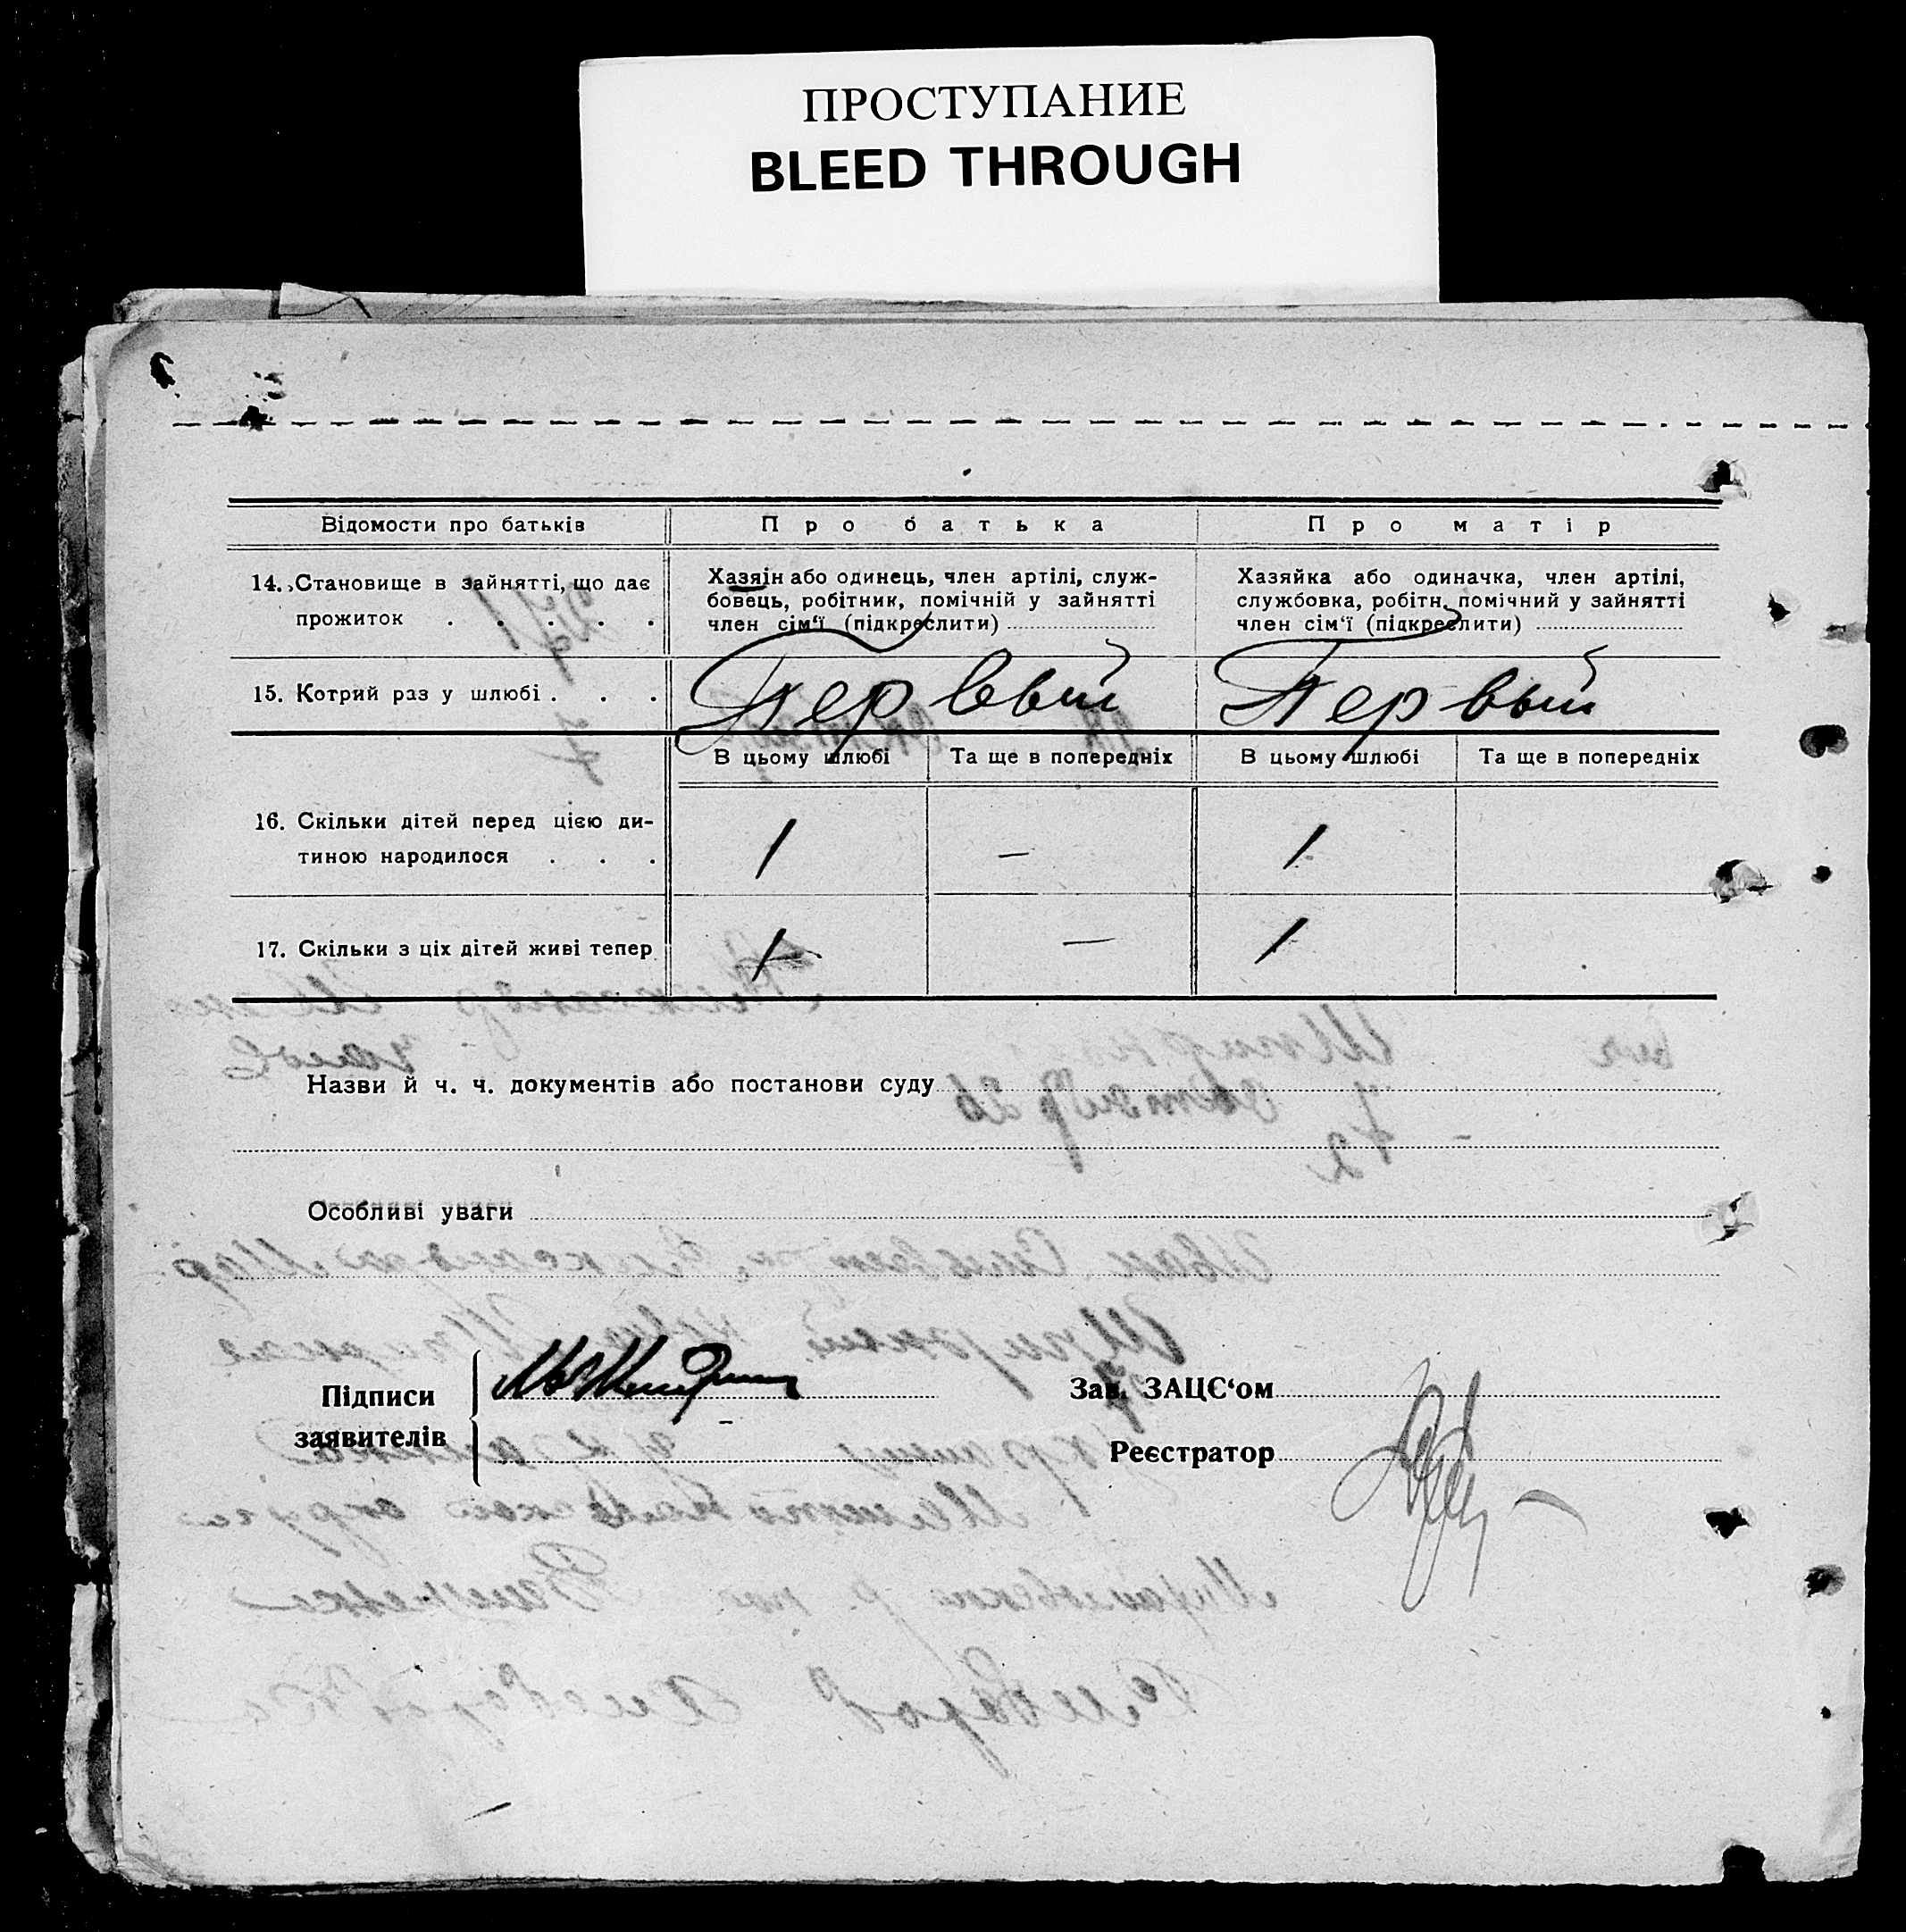 ПРОСТУПАНИЕ
BLEED THROUGH
Відомости про батьків
Про батька
Про матір
14. Становище в зайнятті, що дає
прожиток . . . . .
Хазяін або одинець, член артілі, служ-
бовець, робітник, помічній у зайнятті
член сім‘ї (підкреслити)
Хазяйка або одиначка, член артілі,
службовка, робітн. помічний у зайнятті
член сім‘ї (підкреслити)
15. Котрий раз у шлюбі . . .
Первый
Первый
В цьому шлюбі
Та ще в попередніх
В цьому шлюбі
Та ще в попередніх
16. Скільки дітей перед цією ди-
тиною народилося . . .
1
—
1
17. Скільки з ціх дітей живі тепер
1
—
1
Назви й ч. ч. документів або постанови суду
Особливі уваги
Підписи
заявителів
Зав. ЗАЦЄ‘ом
Реєстратор